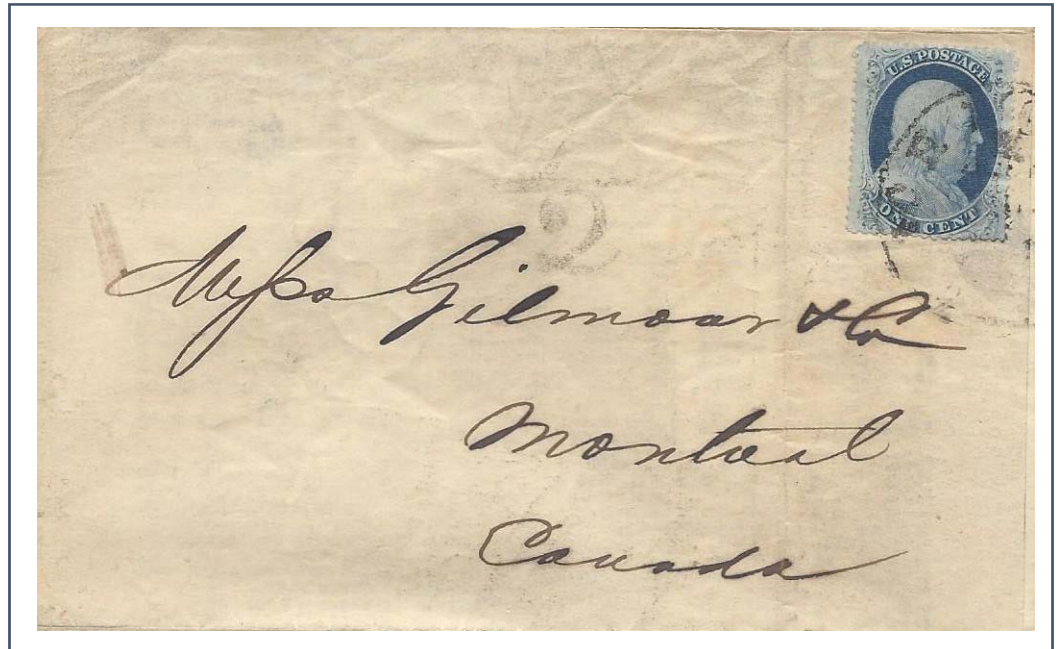 U.S. POSTAGE
ONE CENT
2
Messrs Gilmour & Co
Montreal
Canada